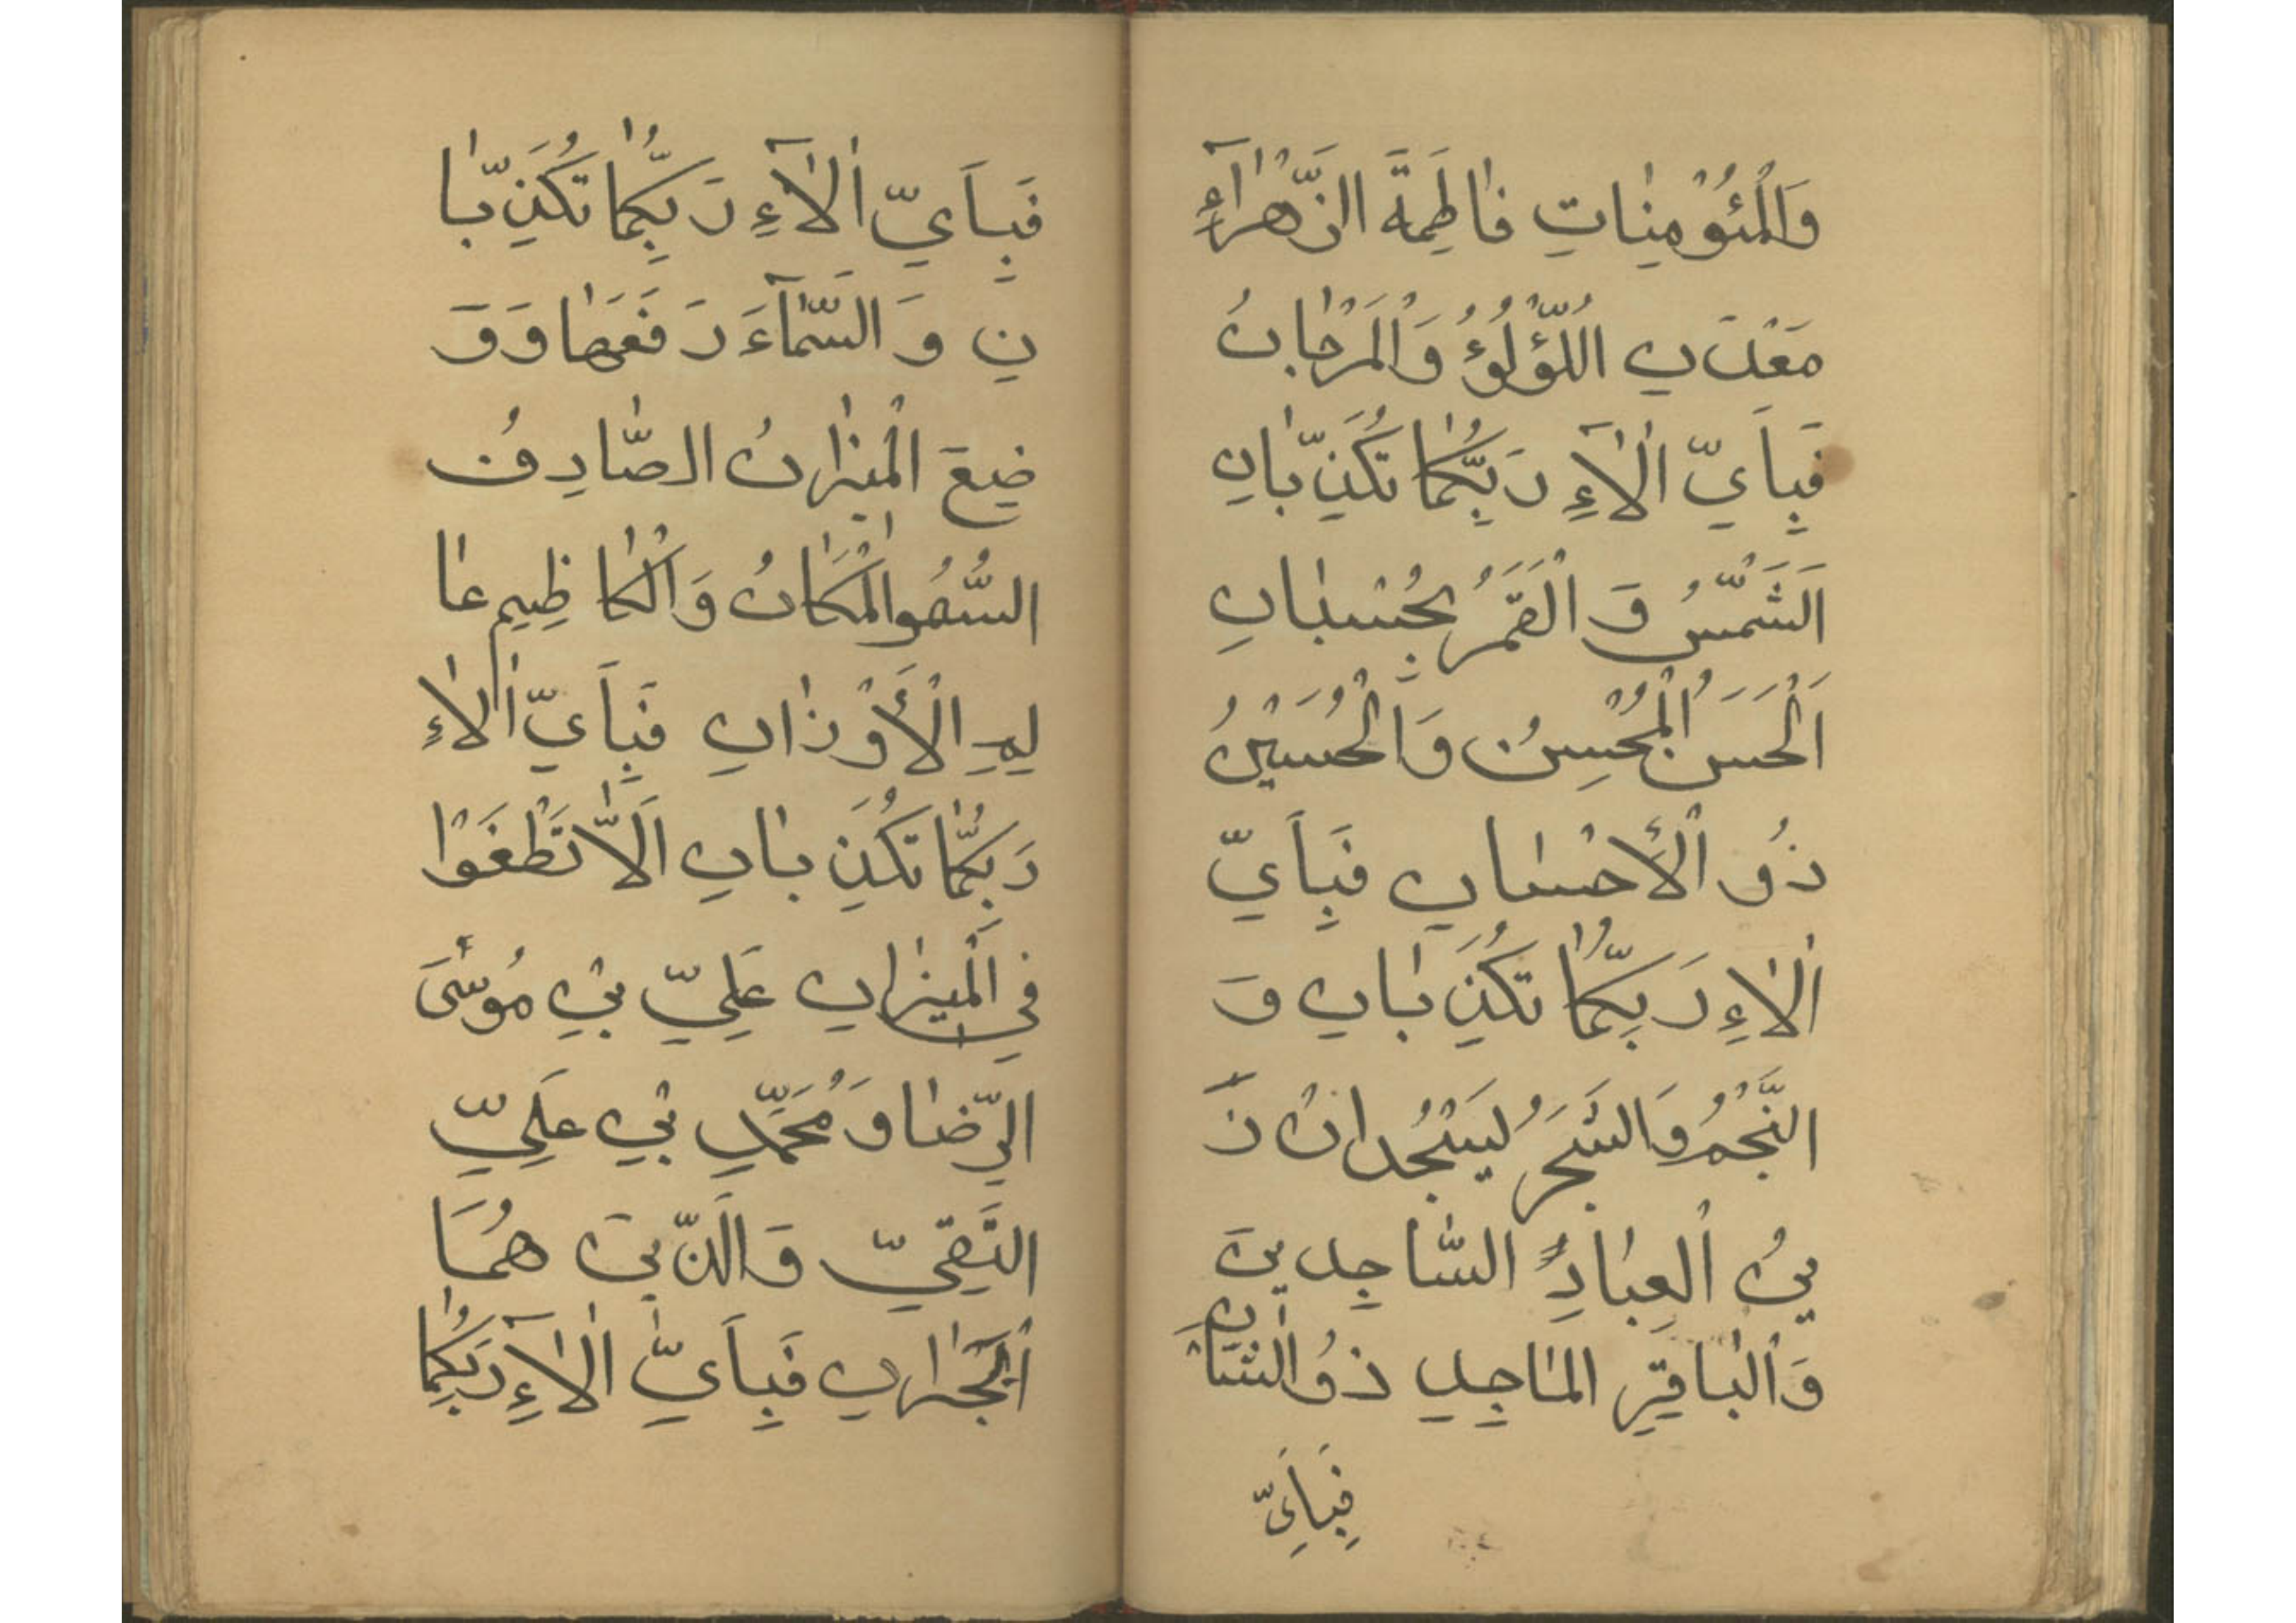 وَالْمُؤْمِنٰاتِ فٰاطِمَةَ الزَّهْرٰآءِ
مَعْدَنِ اللُّؤْلُؤُ وَالْمَرْجٰانُ
فَبِاَيِّ اٰلٰآءِ رَبِّكُمٰا تُكَذِّبٰانِ
اَلشَّمْسُ وَ الْقَمَرُ بِحُسْبٰانِ
اَلْحَسَنُ الْمُحْسِنُ وَالْحُسَيْنُ
ذُو الْأَحْسٰانِ فَبِاَيِّ
اٰلٰاءِ رَبِّكُمٰا تُكَذِّبٰانِ وَ
النَّجْمُ وَالشَّجَرُ يَسْجُدانْ زَ
يْنُ الْعِبٰادِ السّٰاجِدينَ
وَالْبٰاقِرِ المٰاجِدِ ذُو الشَّاْنِ
فَبِاَيِّ
فَبِاَيِّ اٰلٰآءِ رَبِّكُمٰا تُكَذِّبٰا
نِ وَ السَّمٰآءَ رَفَعَهٰا وَوَ
ضِعَ الْمِيزٰانُ الصّٰادِقُ
السُّمُو الْمَكٰانُ وَالْكٰاظِيمِ عٰا
لِمِ الْأَوْزٰانِ فَبِاَيِّ اٰلٰاءِ
رَبِّكُمٰا تُكَذِّبٰانِ اَلّٰا تَطْغَوْا
فِي الْمِيزٰانِ عَلِيِّ بْنِ مُوسَى
الرِّضٰا وَ مُحَمَّدِ بْنِ عَلِيِّ
التَّقِيِّ وَالَّذينَ هُمَا
اَلْجَٰرانِ فَبِاَيِّ اٰلٰآءِ رَبِّكُمٰا